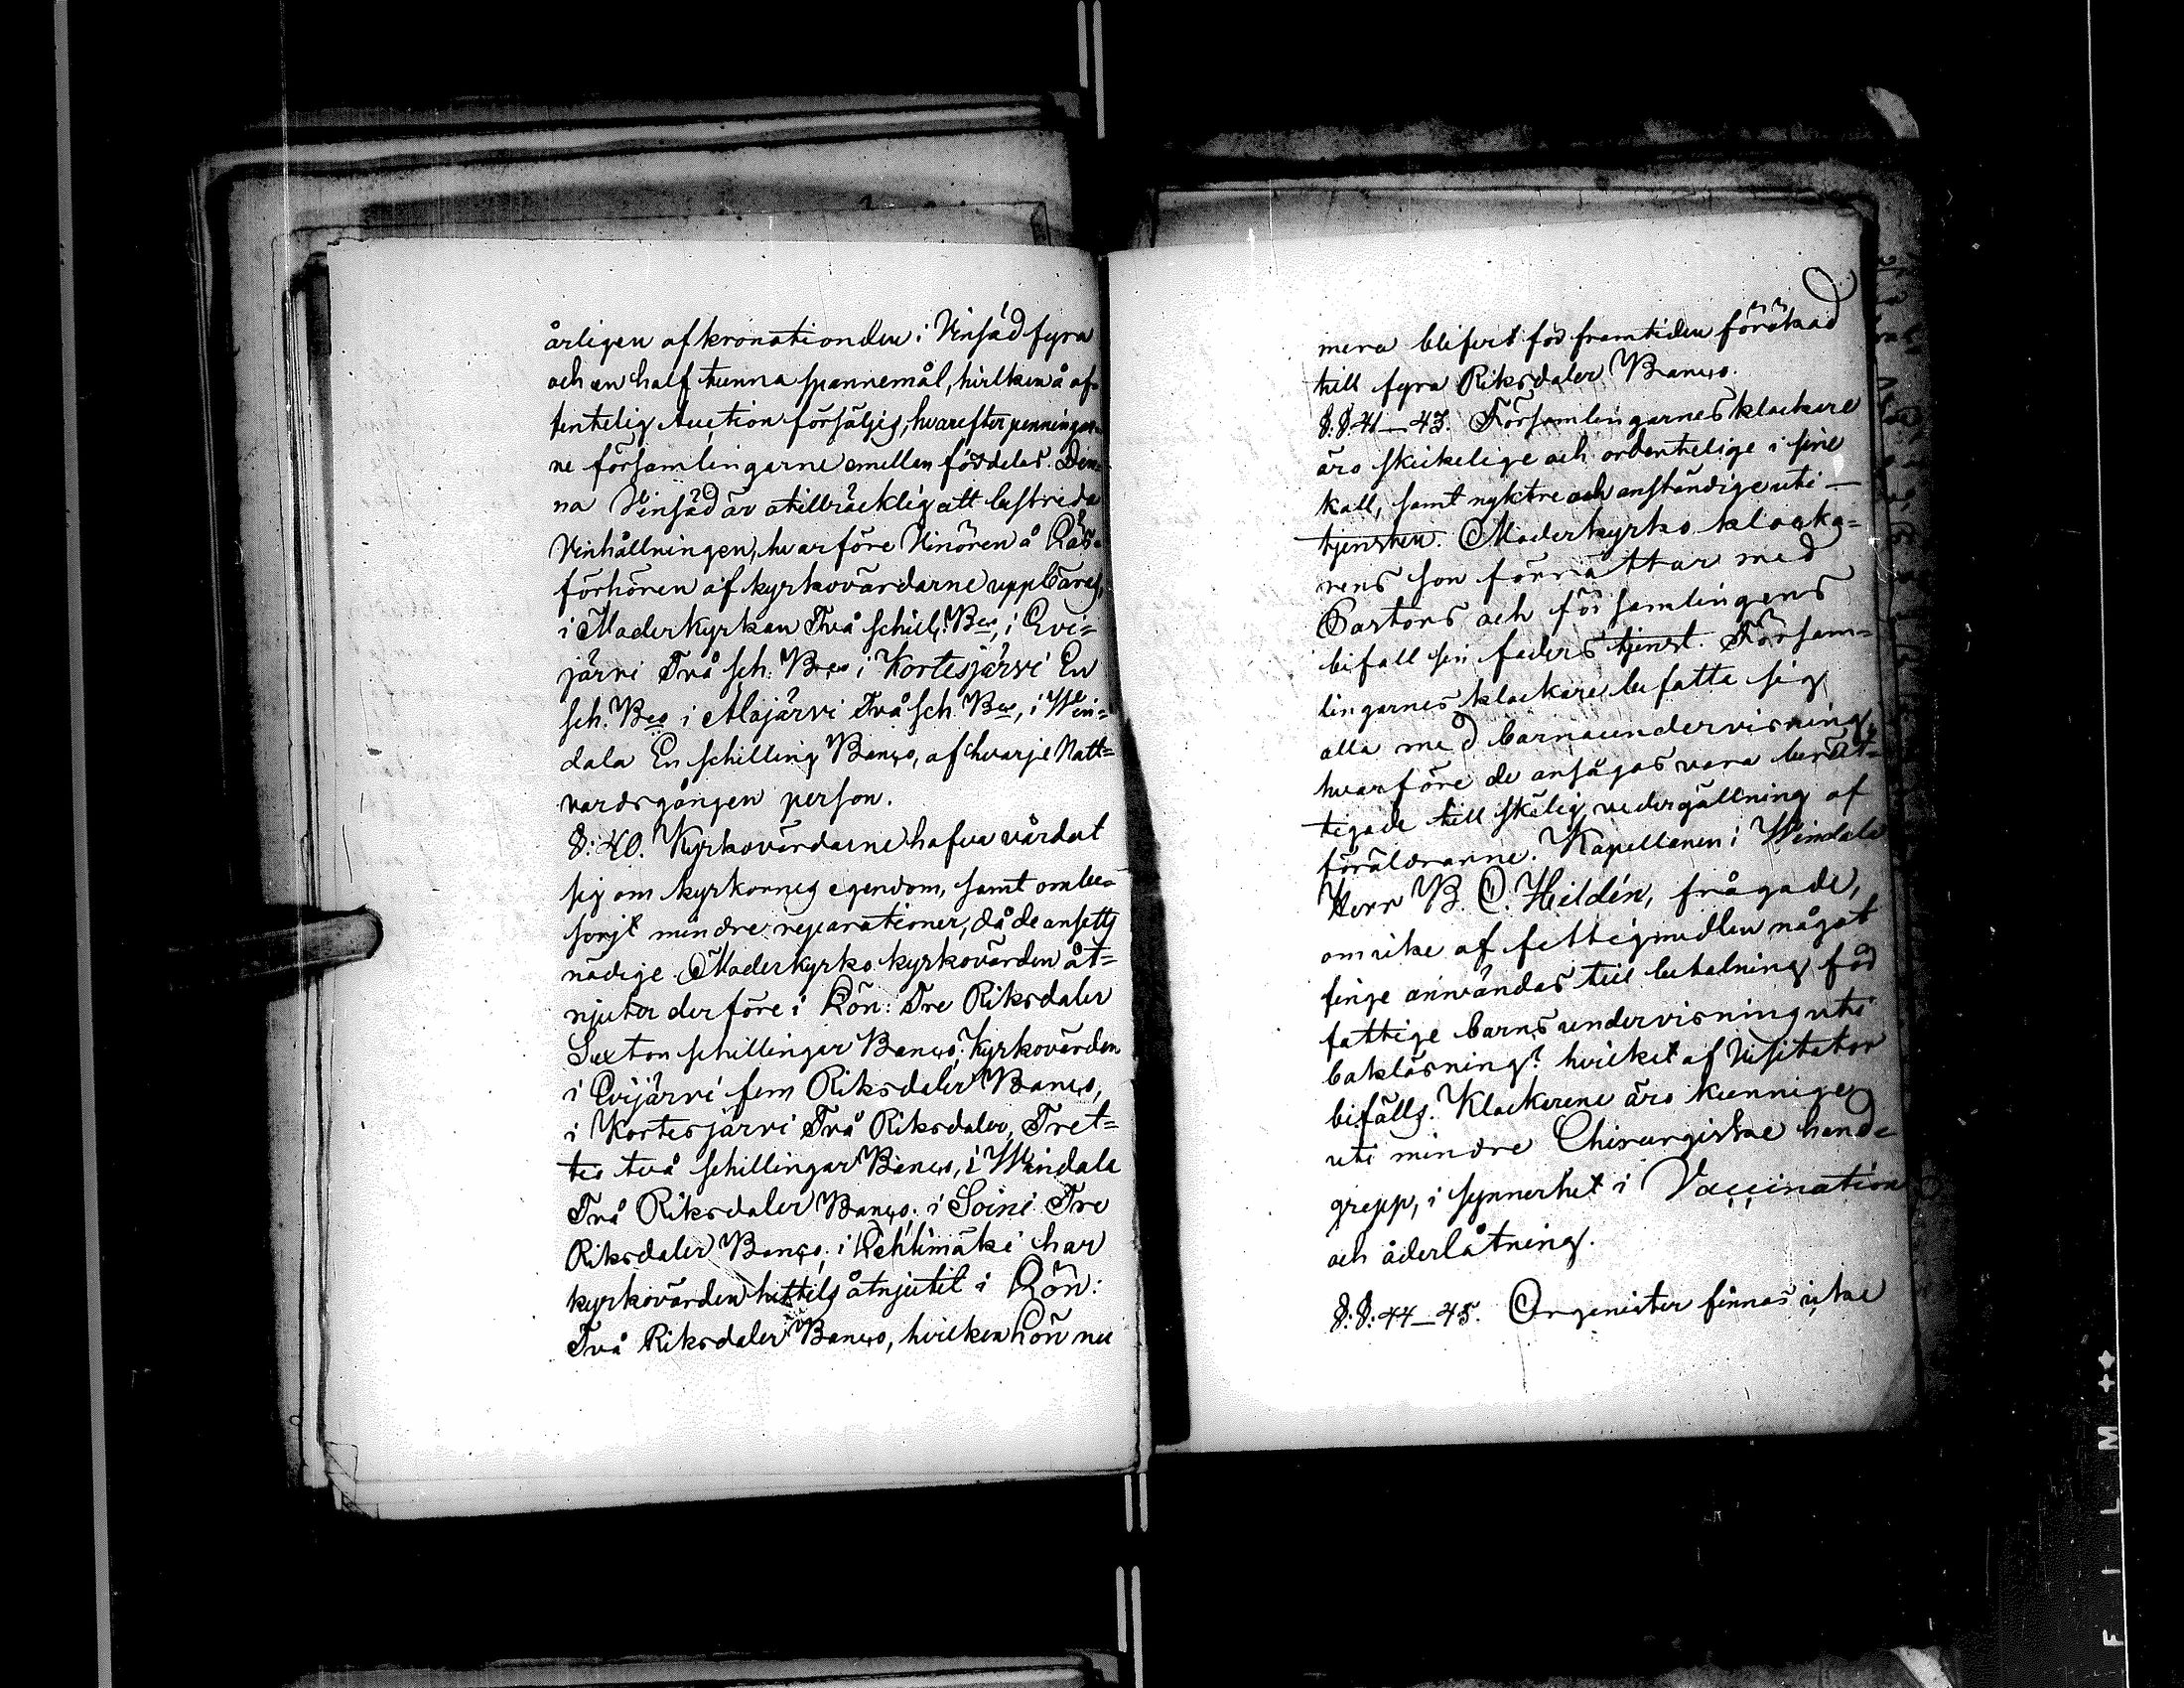 årligen af kronotionden i Vinsäd fyra
och en half tunna spannemål, hvilken å of-
fentelig Auction försäljes, hvarefter penningar-
ne församlingarne emellan fördelas. Den-
na Vinsäd är otillräcklig att bestrida
Vinhållningen, hvarföre Vinören å Läs-
förhören af kyrkovärdarne uppbäres,
i Moderkyrkan Två schill: Bco, i Evi=
järvi Två sch. Bco i Kortesjärvi En
sch. Bco i Alajärvi Två sch. Bco, i Win=
dala En schilling Banco, af hvarje Natt=
vardsgången person.
§: 40. Kyrkovärdarne hafva vårdat
sig om kyrkornes egendom, samt ombe-
sorjt mindre reparationer, då de ansetts
nödige. Moderkyrko kyrkovärden åt=
njuter derföre i Lön: Tre Riksdaler
Sexton schillingar Banco; Kyrkovärden
i Evijärvi fem Riksdaler Banco,
i Kortesjärvi Två Riksdaler, Tret=
tio två schillingar Banco, i Windala
Två Riksdaler Banco: i Soini Tre
Riksdaler Banco; i Lehtimäki har
kyrkovärden hittils åtnjutit i Lön:
Två Riksdaler Banco, hvilken Lön nu
mera blifvit för framtiden förökad
till fyra Riksdaler Banco.
§.§. 41_43. Församlingarnes klockare
äro skickelige och ordentelige i sine
kall, samt nyktre och anständige uti _
tjensten. Moderkyrko klocka=
rens son förrättar med
Pastors och församlingens
bifall sin faders tjenst. Försam=
lingarnes klockare befatta sig
alla med barnaundervisning,
hvarföre de ansågos vara berät=
tigade till skälig vedergällning af
föräldrarne. Kapellanen i Windala
Herr B. C. Heldén, frågade,
om icke af fattigmedlen något
finge användas till betalning för
fattige barns undervisning uti
bokläsning? hvilket af Visitator
bifälls. Klockarene äro kunnige
uti mindre Chirurgiske hand-
grepp, i synnerhet i Vaccination
och åderlåtning.
§.§. 44_45. Organister finnas icke
F I L M